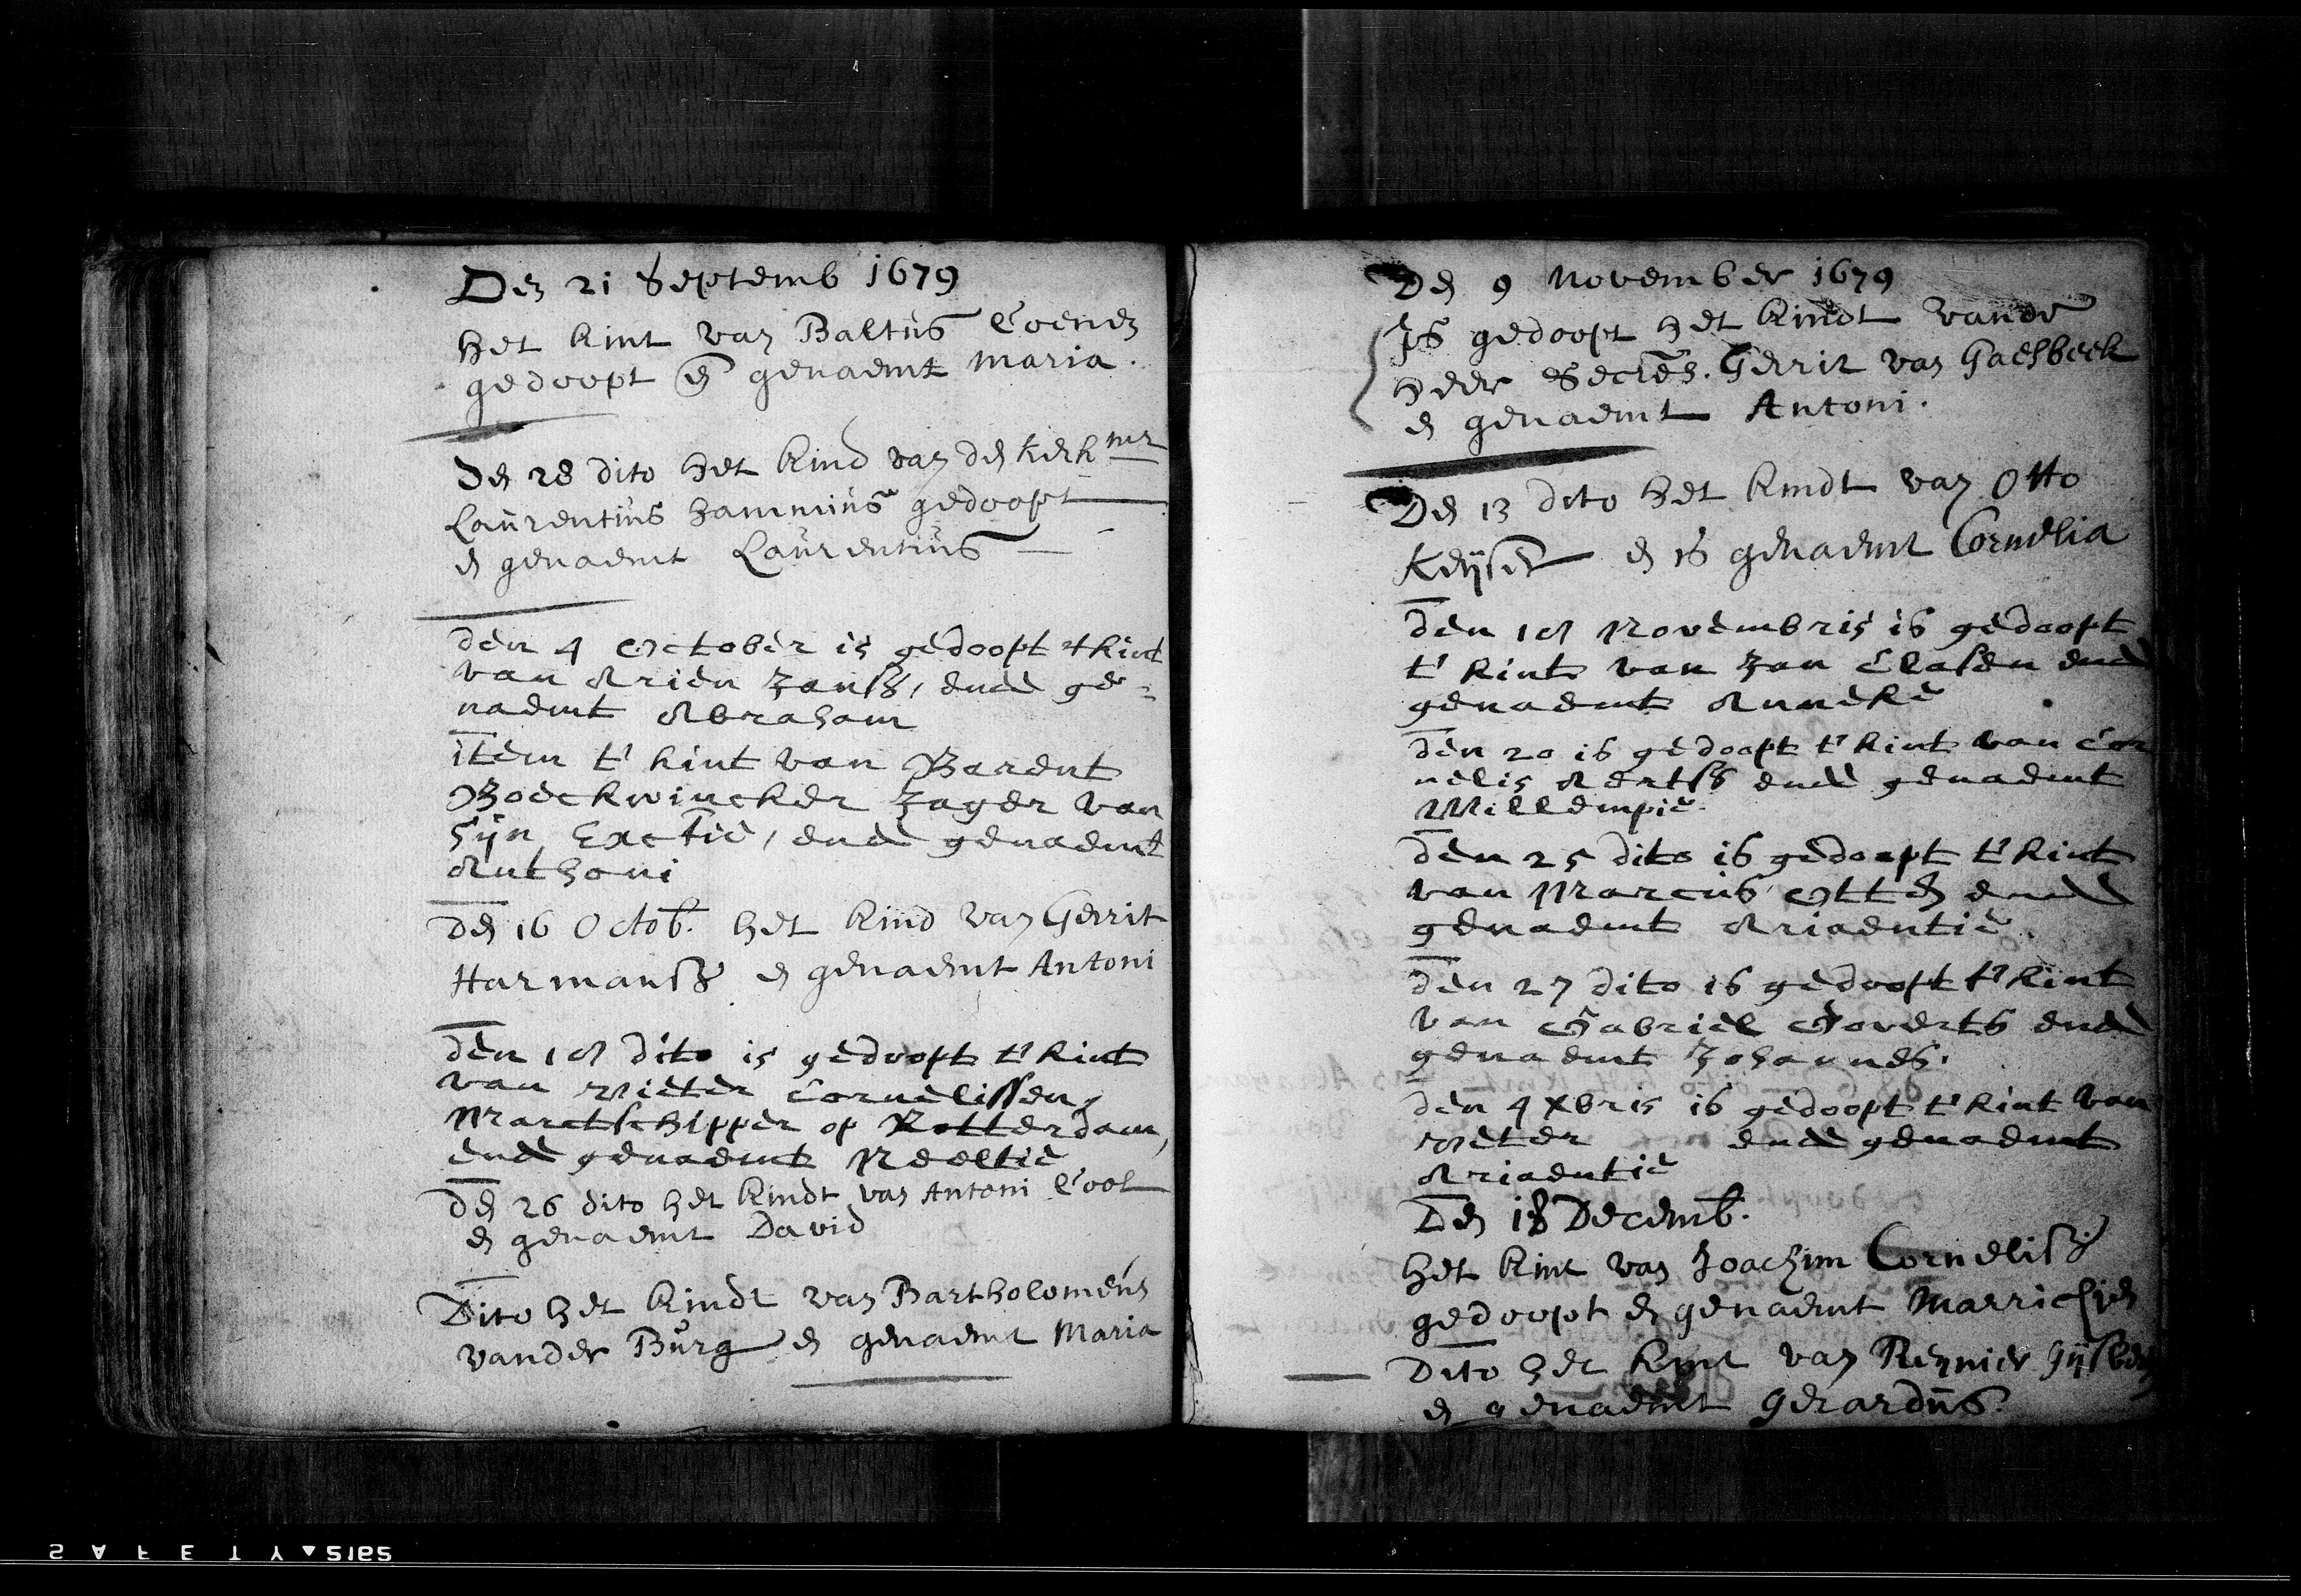 Den 21 Septemb 1679
het kint van Baltus Coenen
gedoopt en genaemt Maria.
Den 28 dito het kind van den kerkmr
Laurentius Zammius gedoopt
en genaemt Laurentius
den 4 October is gedoopt t kint
van Arien Jansz, ende ge-
naemt Abraham
item t' kint van Barent
Boeckwincker Jager van
Sijn Exctie, ende genaemt
Anthoni
Den 16 Octob. het kind van Gerrit
Harmansz en genaemt Antoni
den 18 dito is gedoopt t' kint
van Pieter Cornelissen,
Marctschipper op Rotterdam,
ende genaemt Neeltie
Den 26 dito het kindt van Antoni Cool
en genaemt David
Dito het kindt van Bartholomeus
vander Burg en genaemt Maria
Den 9 November 1679
Is gedoopt het kindt vande
Heer Secrēs. Gerrit van Gaesbeek
en genaemt Antoni.
Den 13 dito het kindt van Otto
Keyser en is genaemt Cornelia
den 18 Novembris is gedoopt
t' kint van Jan Clasen ende
genaemt Anneke
den 20 is gedoopt t' kint van Cor
nelis Aertsz ende genaemt
Willempie.
den 25 dito is gedoopt t' kint
van Marcus Otten ende
genaemt Ariaentie.
den 27 dito is gedoopt t' kint
van Gabriel Goverts ende
genaemt Johannes.
den 4 Xbris is gedoopt t' kint van
Pieter ende genaemt
Ariaentie
Den 18 Decemb.
het kint van Joachim Cornelisz
gedoopt en genaemt Marrichjen
Dito het kint van Reynier Gijsberts
en genaemt Gerardus.
SAFETY▲5165